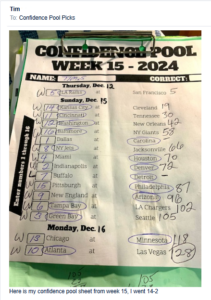 Tim
To: Confidence Pool Picks
CONFIDENCE POOL
WEEK 15 - 2024
NAME: CORRECT:
Thursday, Dec. 12
W at San Francisco 5
Sunday, Dec. 15
W 14 Kansas City at Cleveland 19
W Cincinnati at Tennessee 30
W Washington at New Orleans 42
W Baltimore at NY Giants 58
Dallas at Carolina
W NY Jets at Jacksonville 66
Miami at Houston 70
Indianapolis at Denver 72
Buffalo at Detroit
Pittsburgh at Philadelphia 87
New England at Arizona 96
W Tampa Bay at LA Chargers 102
W Green Bay at Seattle 105
Monday, Dec. 16
W Chicago at Minnesota 118
W 10 Atlanta at Las Vegas 128
Enter numbers 1 through 16
Here is my confidence pool sheet from week 15, I went 14-2